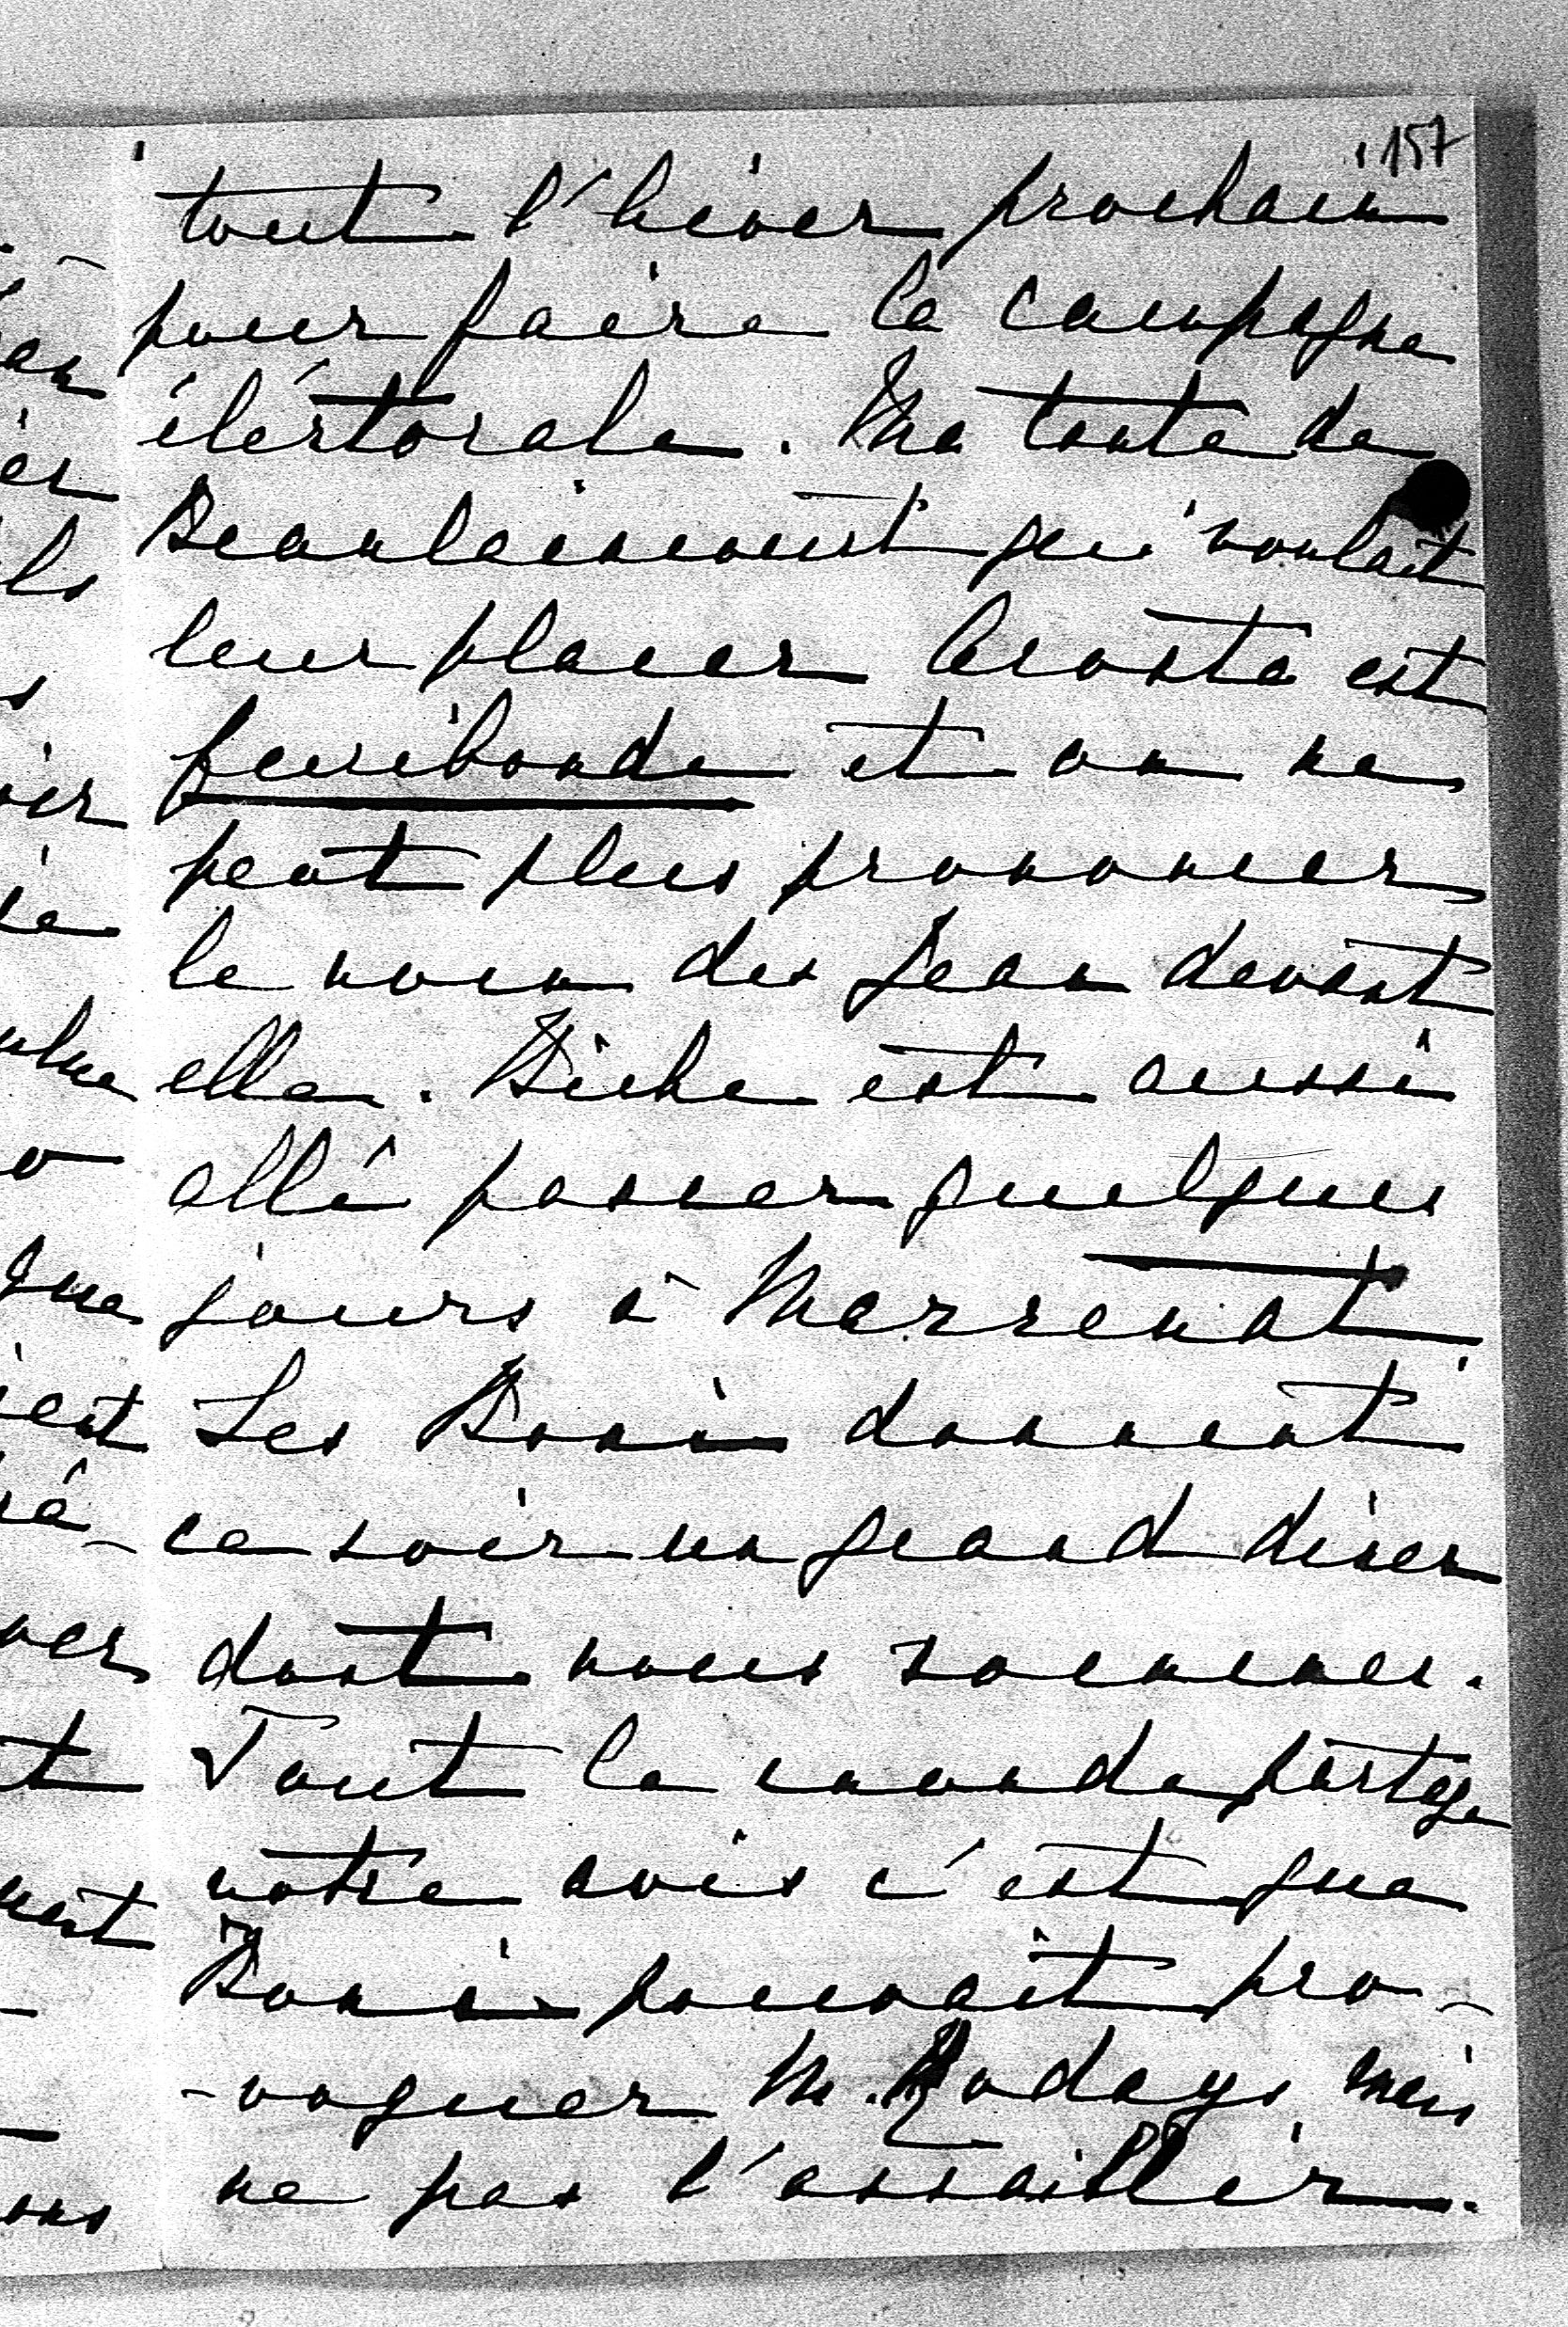 157
tout l'hiver prochain
pour faire la campagne
éléctorale. Ma tante de
Beaulaincourt qui voulait
leur placer Acosta est
furibonde et on ne
peut plus prononcer
le nom des Jean devant
elle. Biche est aussi
allé passer quelques
jours à Marrenat
Les Boni donnent
ce soir un grand diner
dont nous sommes.
Tout le monde partage
notre avis c'est que
Boni pouvait pro-
-voquer M. Rodays mais
ne pas l'assaillir.